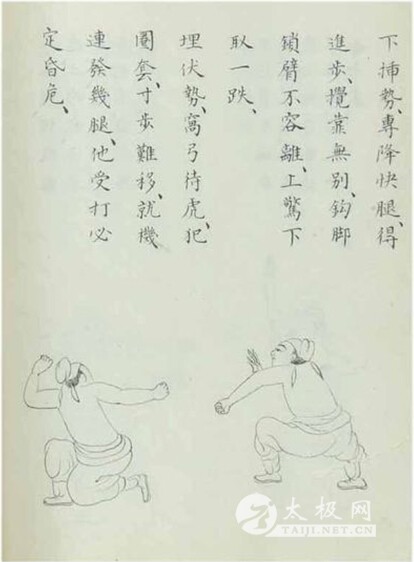 下揷勢、專降快腿、得
進步、攪靠無別、鈎脚
鎖臂不容離、上驚下
取一跌、
埋伏勢、窩弓待虎、犯
圈套、寸步難移、就機
連發幾腿、他受打必
定昏危、
太极网
TAIJI.NET.CN